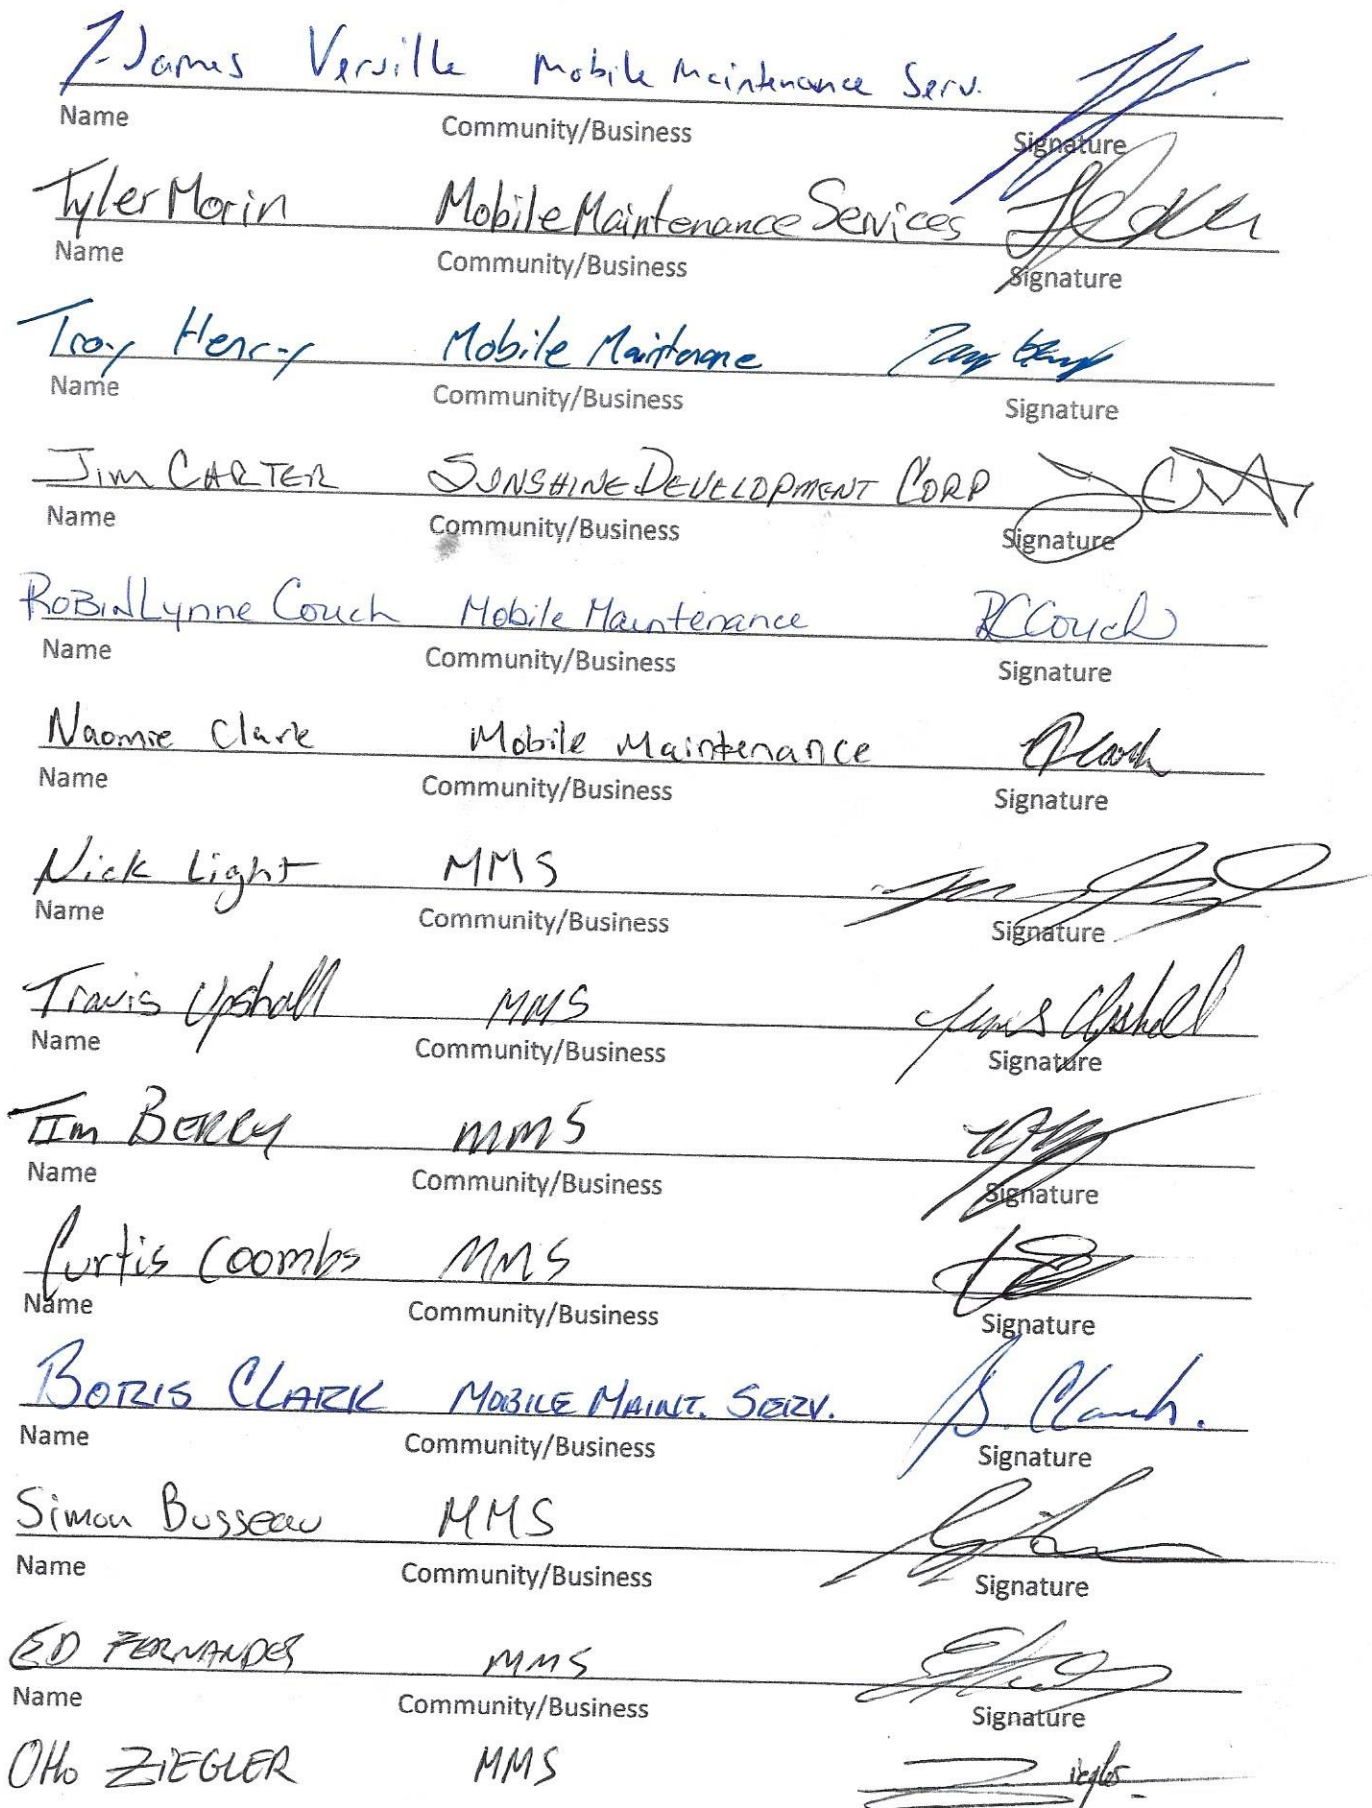 James Verville Mobile Maintenance Serv.
Name Community/Business Signature
Tyler Morin Mobile Maintenance Services
Name Community/Business Signature
Troy Henry Mobile Maintenane
Name Community/Business Signature
Jim CARTER SUNSHINE DEVELOPMENT CORP
Name Community/Business Signature
ROBIN Lynne Couch Mobile Maintenance RCCouch
Name Community/Business Signature
Naomie Clark Mobile Maintenance
Name Community/Business Signature
Nick Light MMS
Name Community/Business Signature
Travis Upshall MMS Travis Upshall
Name Community/Business Signature
Tim BERRY MMS
Name Community/Business Signature
Curtis Coombs MMS
Name Community/Business Signature
BORIS CLARK MOBILE MAINT. SERV. B. Clark.
Name Community/Business Signature
Simon Busseau MMS
Name Community/Business Signature
ED FERNANDES MMS
Name Community/Business Signature
Otto ZIEGLER MMS Ziegler